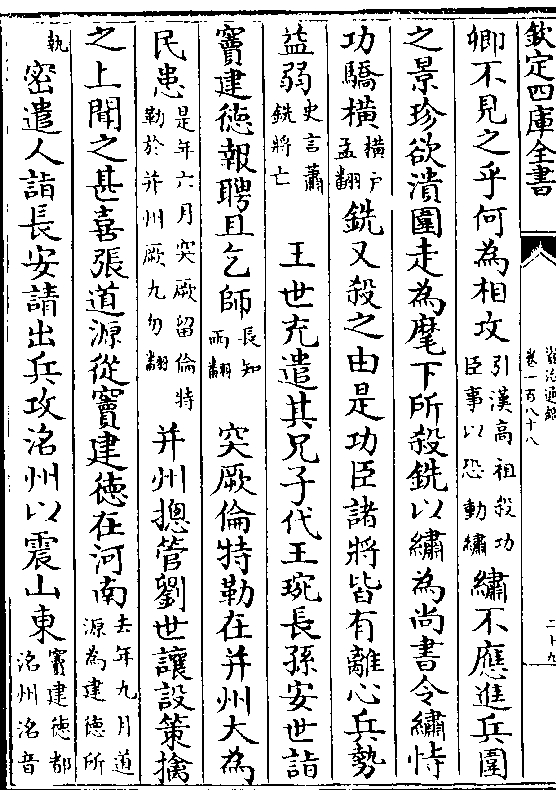 欽定四庫全書
資治通鑑
卷一百八十八
二十九
卿不見之乎何為相攻引漢高祖殺功臣事以恐動繡繡不應進兵圍
之景珍欲潰圍走為麾下所殺銑以繡為尚書令繡恃
功驕横横户孟翻銑又殺之由是功臣諸將皆有離心兵勢
益弱史言蕭銑將亡 王世充遣其兄子代王琬長孫安世詣
竇建德報聘且乞師長知兩翻 突厥倫特勒在并州大為
民患是年六月突厥留倫特勒於并州厥九勿翻 并州摠管劉世讓設策擒
之上聞之甚喜張道源從竇建德在河南去年九月道源為建德所
執密遣人詣長安請出兵攻洺州以震山東竇建德都洺州洺音